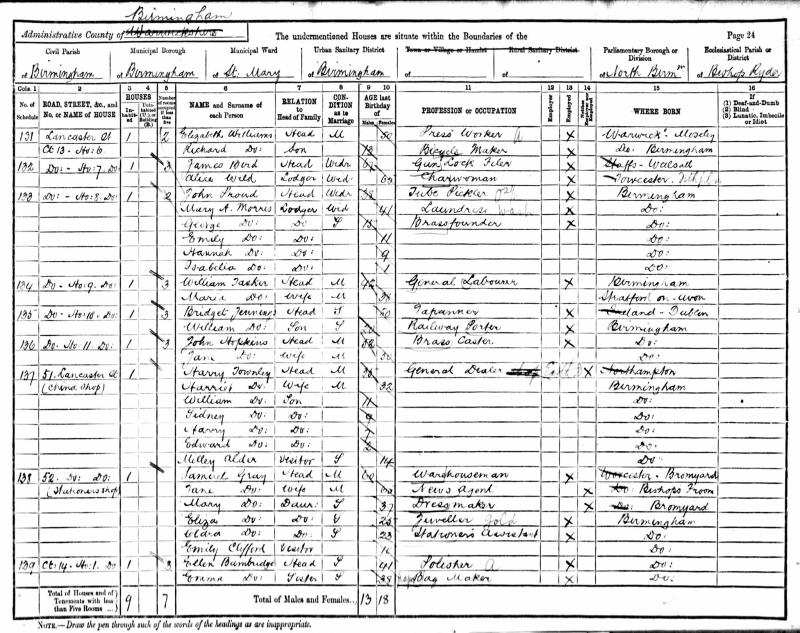 Birmingham
Administrative County of Warwickshire The undermentioned Houses are situate within the Boundaries of the Page 24
Civil Parish Municipal Borough Municipal Ward Urban Sanitary District Town or Village or Hamlet Rural Sanitary District Parliamentary Borough or Division Ecclesiastical Parish or District
of Birmingham of Birmingham of St. Mary of Birmingham of of of North Birmm of Bishop Ryder
Cols. 1 2 3 4 5 6 7 8 9 10 11 12 13 14 15 16
No. of Schedule ROAD, STREET, &c., and No. or NAME of HOUSE HOUSES Inhabited Uninhabited (U.), or Building (B.) Number of rooms occupied if less than five NAME and Surname of each Person RELATION to Head of Family CONDITION as to Marriage AGE last Birthday of Males Females PROFESSION or OCCUPATION Employer Employed Neither WHERE BORN If (1) Deaf-and-Dumb (2) Blind (3) Lunatic, Imbecile or Idiot
131 Lancaster St 2 Elizabeth Williams Head M 50 Press Worker X Warwick - Moseley
Ct 13 - No: 6 Richard Do: Son 13 Bicycle Maker X Do: Birmingham
132 Do: - No: 7. Do 1 3 James Bird Head Widr Gun Lock Filer X Staffs - Walsall
Alice Wild Lodger Wid Charwoman X Towcester
133 Do: - No: 8. Do 1 2 John Proud Head Widr 38 Tube Pickler X Birmingham
Mary A. Morris Lodger Wid 41 Laundress X Do:
George Do: Do S 15 Brassfounder X Do:
Emily Do: Do: 11 Do:
Hannah Do: Do: 9 Do:
Isabella Do: Do: 1 Do:
134 Do - No: 9. Do 1 3 William Tasker Head M 42 General Labourer X Birmingham
Maria Do: Wife M 38 Stratford on Avon
135 Do: No: 10. Do: 1 3 Bridget Jennings Head S 50 Japanner X Ireland - Dublin
William Do: Son S Railway Porter X Birmingham
136 Do: No 11. Do: 1 3 John Hopkins Head M 32 Brass Caster X Do:
Jane Do: Wife M 30 Do:
137 51. Lancaster St 1 Harry Townley Head M 33 General Dealer X Northampton
(China Shop) Harriet Do: Wife M 32 Birmingham
William Do: Son 11 Do:
Sidney Do: Do: 9 Do:
Harry Do: Do: 7 Do:
Edward Do: Do: Do:
Milley Alder Visitor S 14 Do:
138 52. Do: Do: 1 Samuel Gray Head M 60 Warehouseman X Worcester - Bromyard
(Stationers Shop) Jane Do: Wife M News Agent X Do: Bishops Froom
Mary Do: Daur: S 37 Dressmaker X Do: Bromyard
Eliza Do: Do: S 25 Jeweller Gold X Birmingham
Do: Do: S 23 Stationers Assistant X Do:
Emily Clifford Visitor Do:
139 Ct: 14. No: 1. Do 1 3 Ellen Bambridge Head S 41 Polisher X Do:
Emma Do: Sister S 38 Bag Maker X Do:
Total of Houses and of Tenements with less than Five Rooms 9 7 Total of Males and Females 13 18
NOTE.—Draw the pen through such of the words of the headings as are inappropriate.